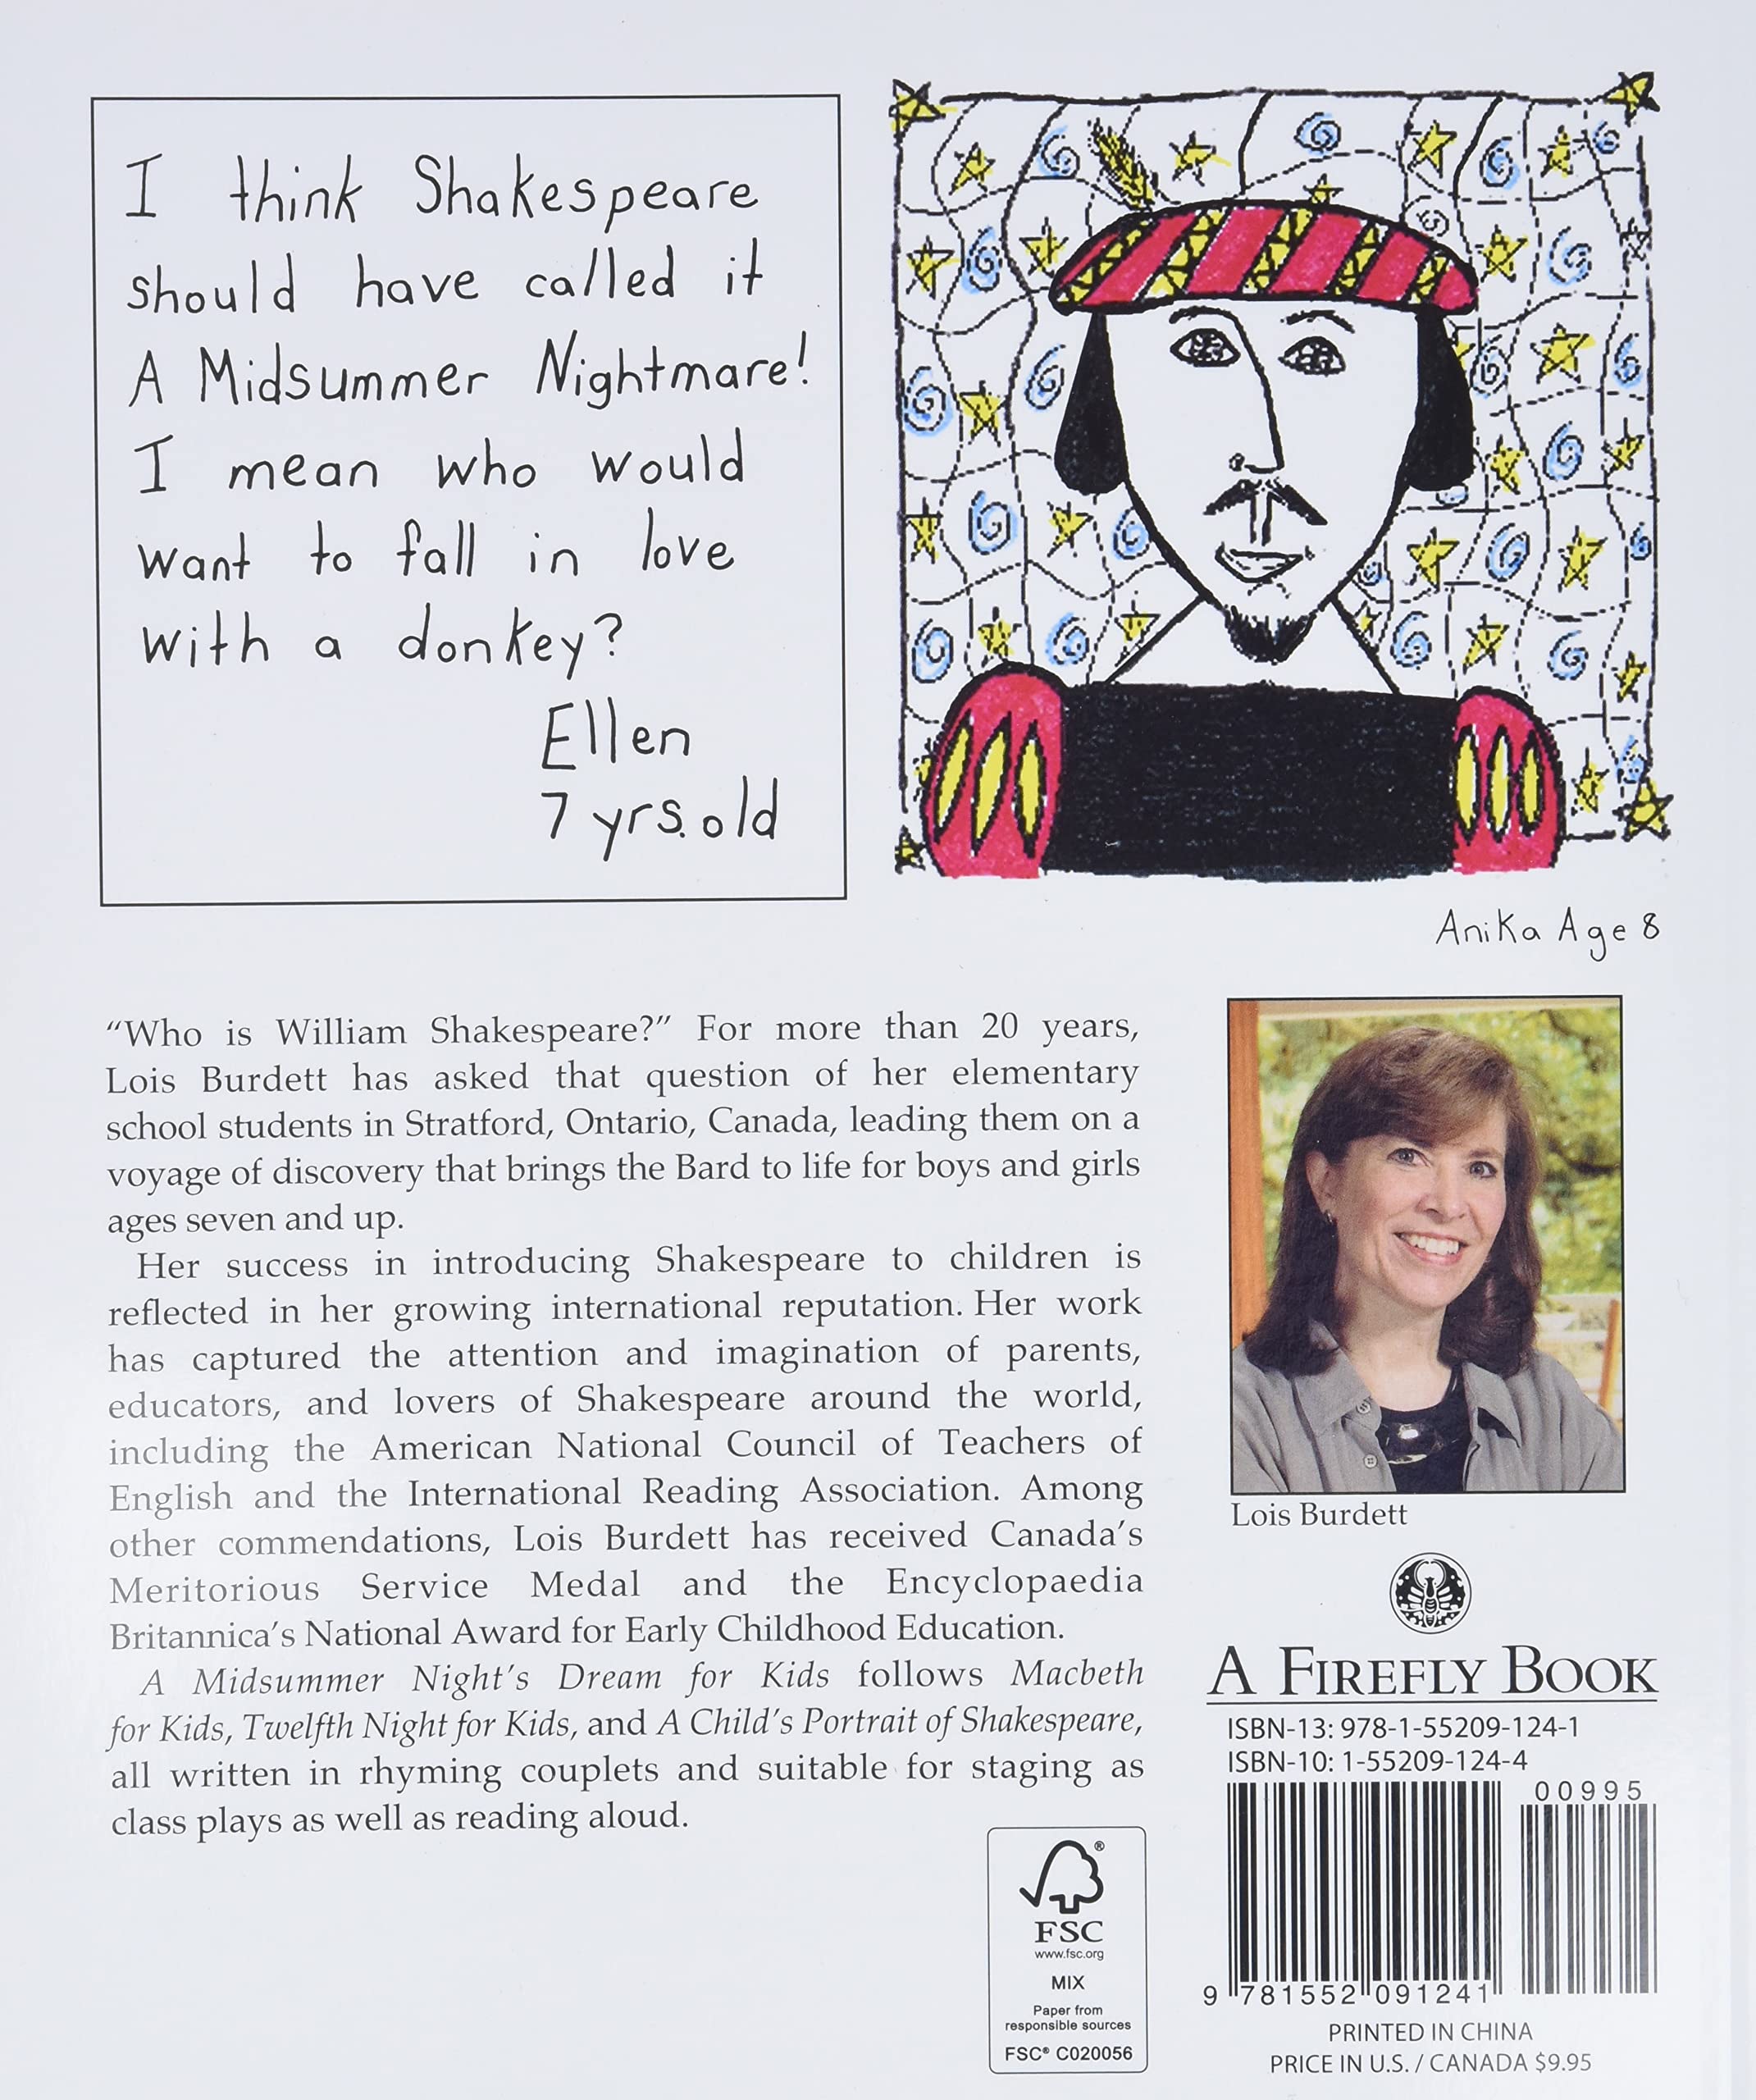 I think Shakespeare
should have called it
A Midsummer Nightmare!
I mean who would
want to fall in love
with a donkey?
Ellen
7 yrs. old
Anika Age 8
“Who is William Shakespeare?” For more than 20 years,
Lois Burdett has asked that question of her elementary
school students in Stratford, Ontario, Canada, leading them on a
voyage of discovery that brings the Bard to life for boys and girls
ages seven and up.
Her success in introducing Shakespeare to children is
reflected in her growing international reputation. Her work
has captured the attention and imagination of parents,
educators, and lovers of Shakespeare around the world,
including the American National Council of Teachers of
English and the International Reading Association. Among
other commendations, Lois Burdett has received Canada’s
Meritorious Service Medal and the Encyclopaedia
Britannica’s National Award for Early Childhood Education.
A Midsummer Night’s Dream for Kids follows Macbeth
for Kids, Twelfth Night for Kids, and A Child’s Portrait of Shakespeare,
all written in rhyming couplets and suitable for staging as
class plays as well as reading aloud.
Lois Burdett
A FIREFLY BOOK
ISBN-13: 978-1-55209-124-1
ISBN-10: 1-55209-124-4
00995
9 781552 091241
PRINTED IN CHINA
PRICE IN U.S. / CANADA $9.95
®
FSC
www.fsc.org
MIX
Paper from
responsible sources
FSC® C020056